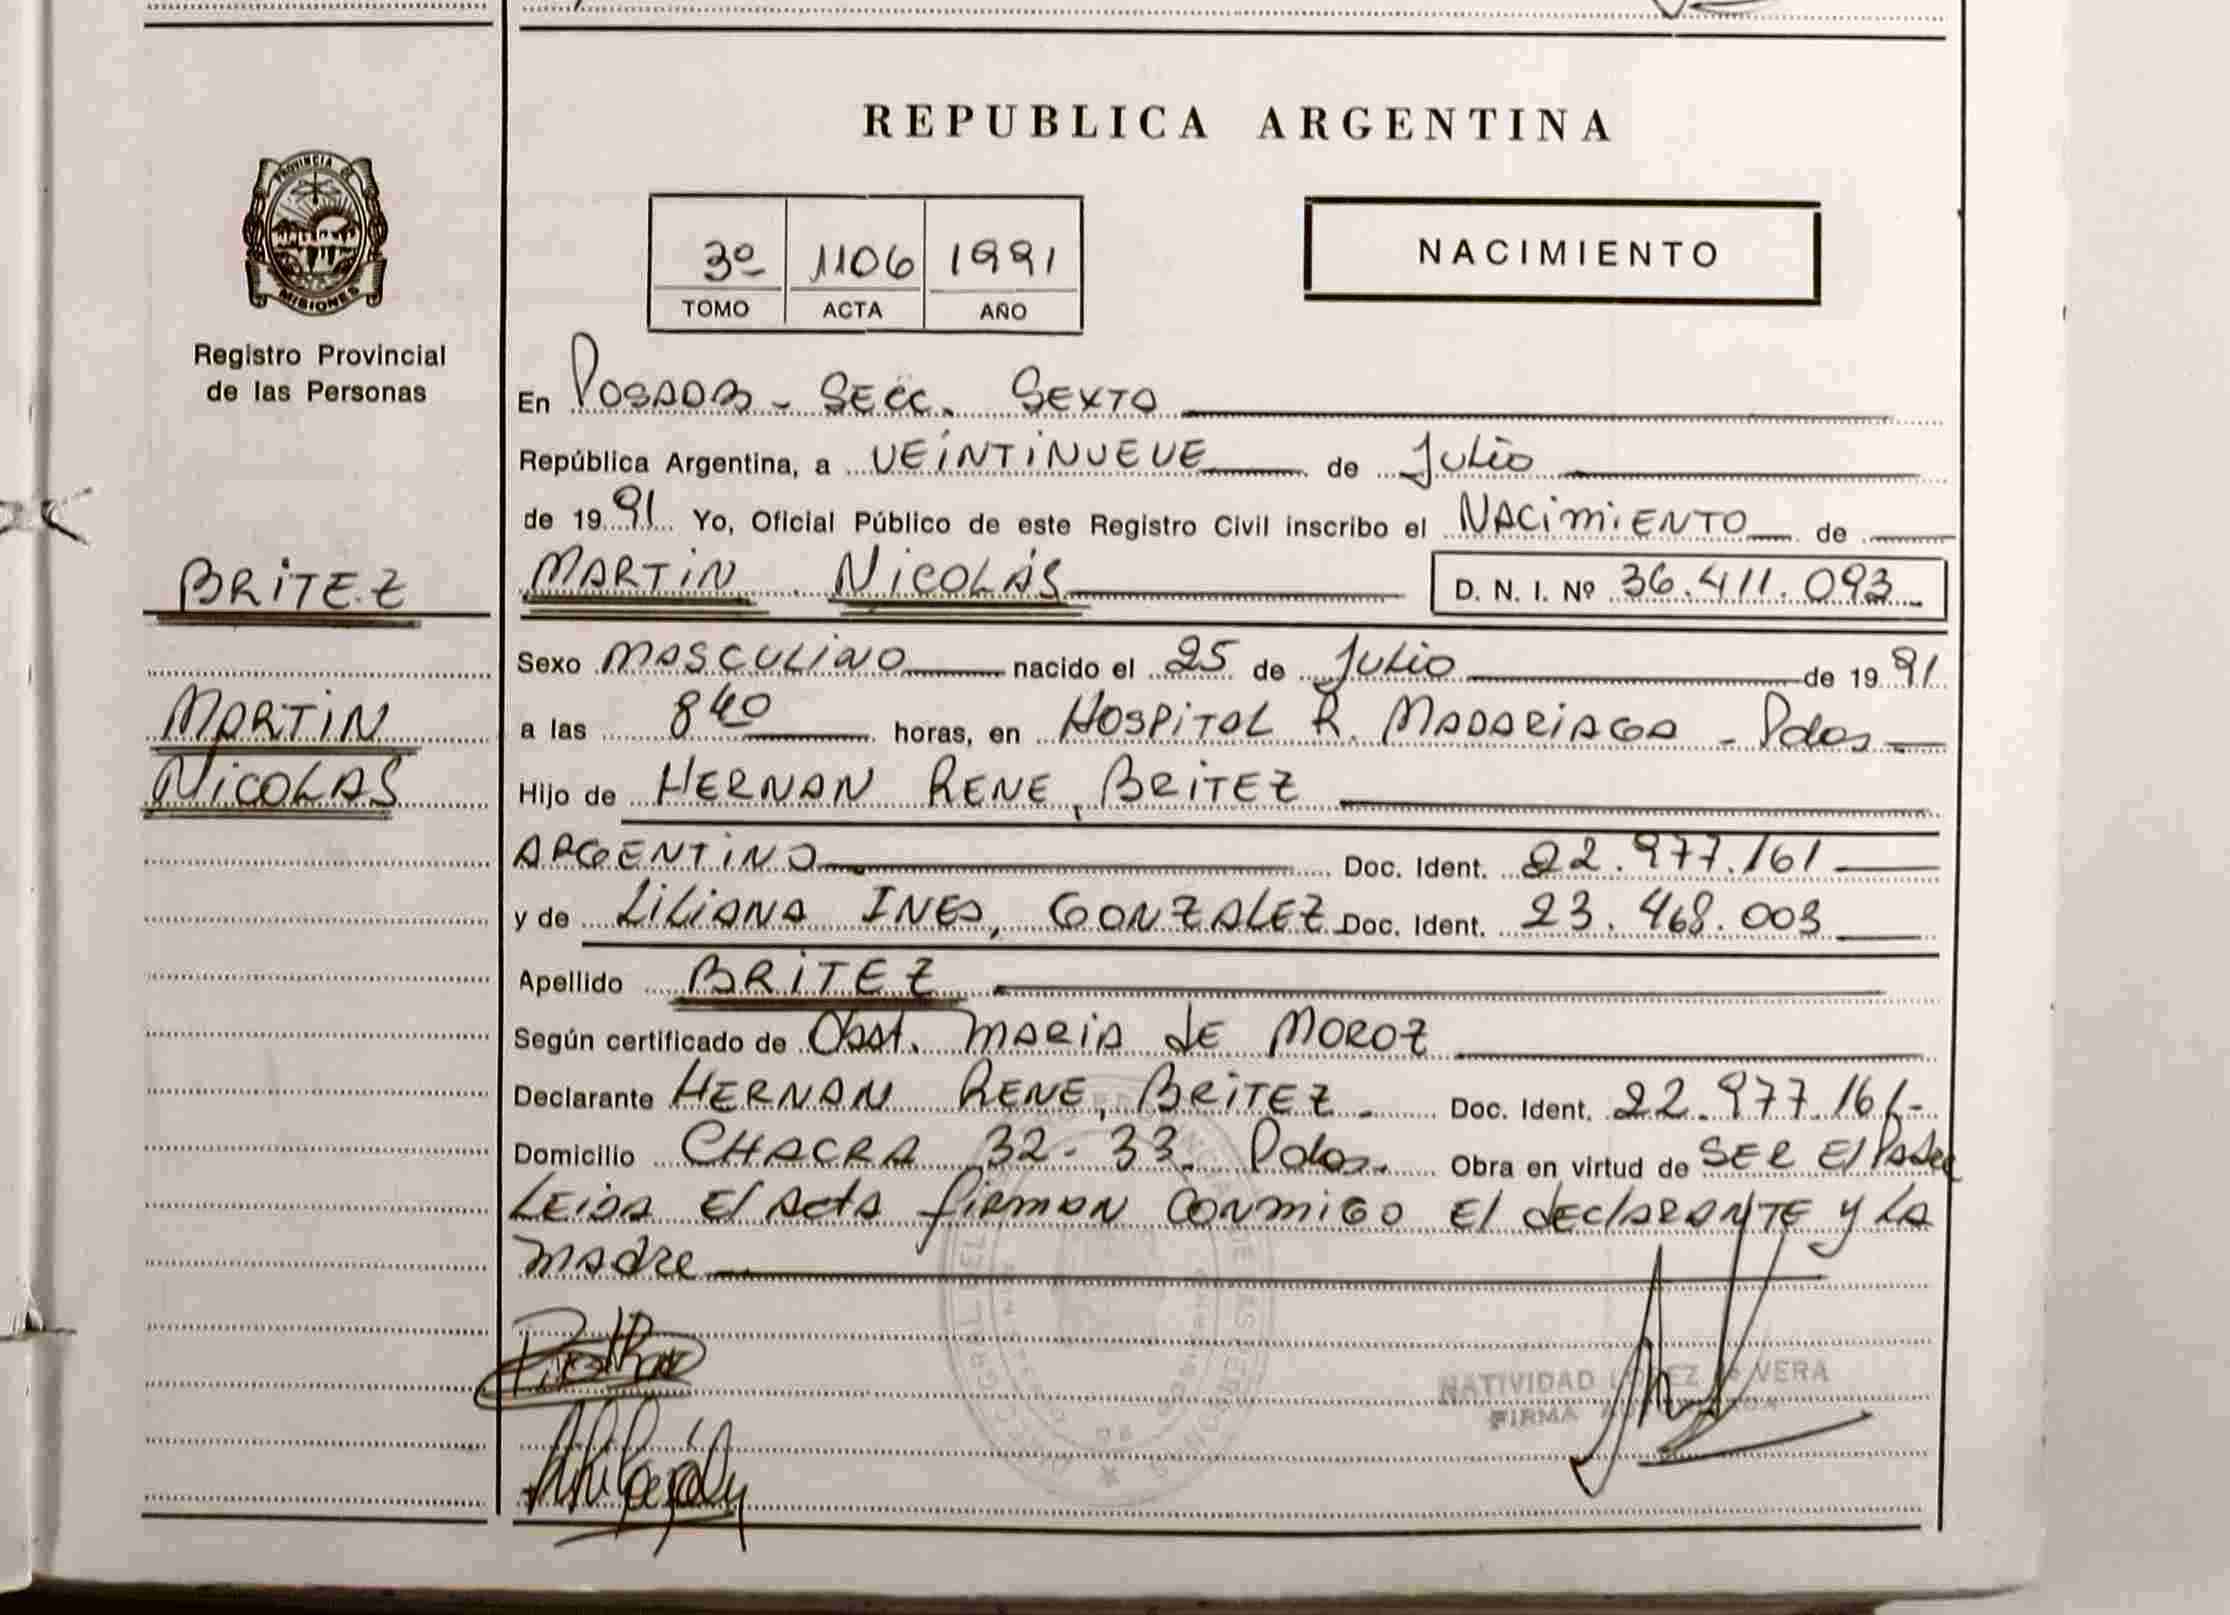 REPUBLICA ARGENTINA
PROVINCIA DE
MISIONES
Registro Provincial
de las Personas
3º 1106 1991
TOMO ACTA AÑO
NACIMIENTO
En POSADAS - SECC. SEXTA
República Argentina, a VEINTINUEVE de Julio
de 1991 Yo, Oficial Público de este Registro Civil inscribo el NACIMIENTO de
BRITEZ
MARTIN NICOLÁS D. N. I. Nº 36.411.093
Sexo MASCULINO nacido el 25 de Julio de 1991
MARTIN
a las 840 horas, en HOSPITAL R. MADARIAGA - Pdas
NICOLAS
Hijo de HERNAN RENE, BRITEZ
ARGENTINO Doc. Ident. 22.977.161
y de LILIANA INES, GONZALEZ Doc. Ident. 23.468.003
Apellido BRITEZ
Según certificado de Obst. MARIA de MOROZ
Declarante HERNAN RENE, BRITEZ - Doc. Ident. 22.977.161-
Domicilio CHACRA 32-33. Pdas. Obra en virtud de SER El Padre
LEIDA El Acta firman CONMIGO El declarante y LA
madre
NATIVIDAD LOPEZ de VERA
FIRMA